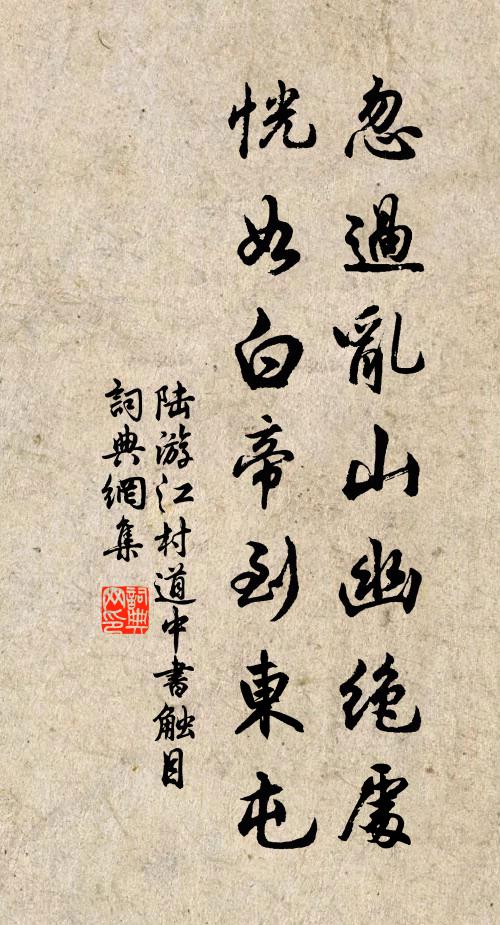 忽過亂山幽絕處
恍如白帝到東屯
陆游江村道中書触目
詞典網集
詞典
网印